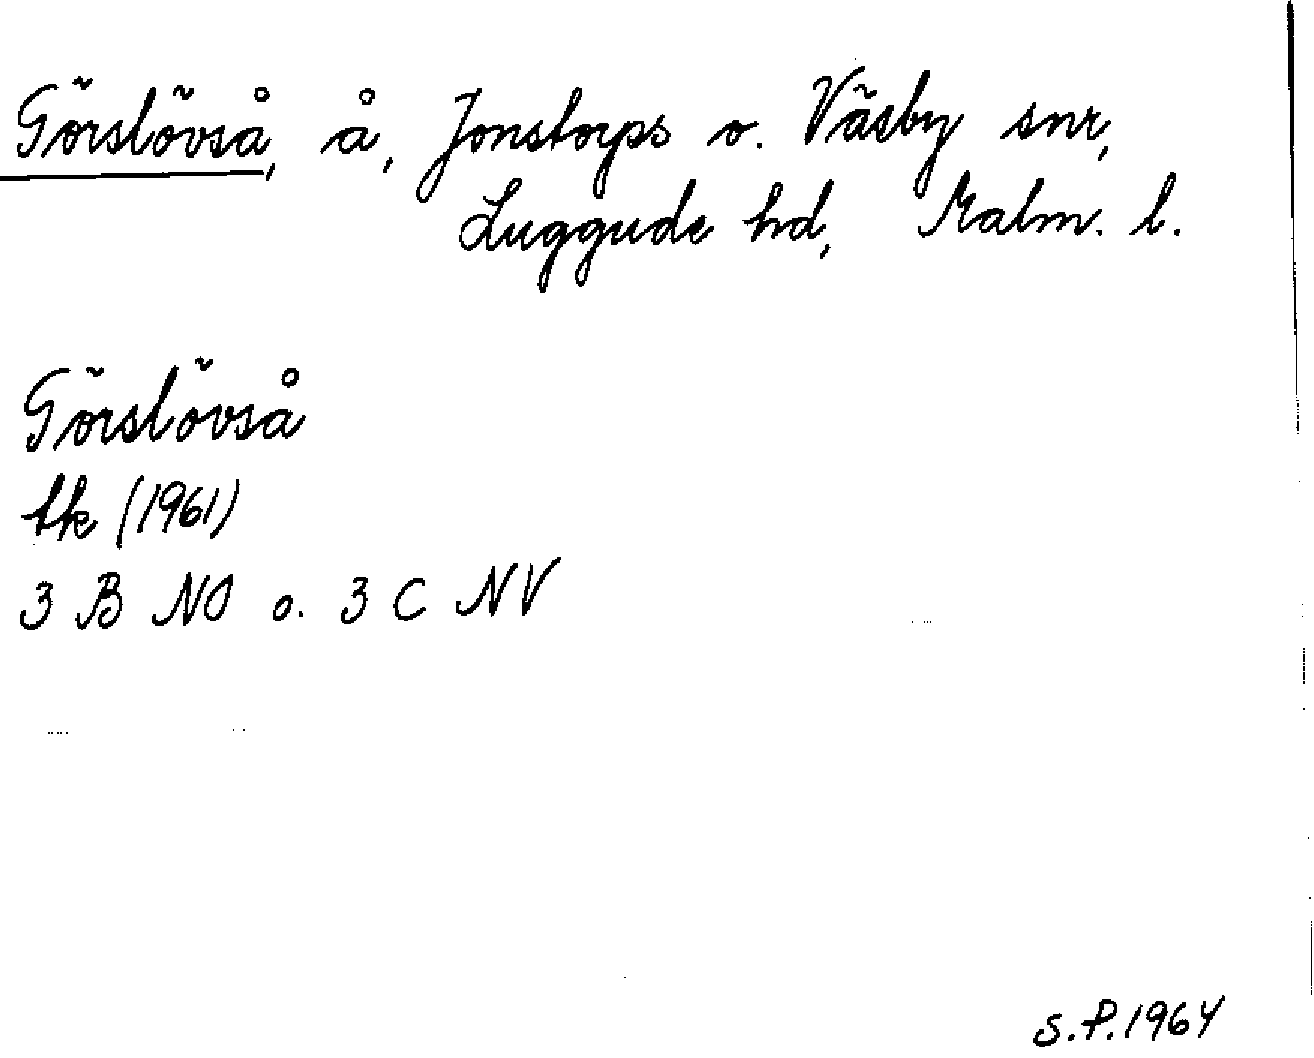 Görslövså, å, Jonstorps o. Väsby snr,
Luggude hd, Malm. l.
Görslövså
tk (1961)
3 B NO o. 3 C NV
S.P. 1964